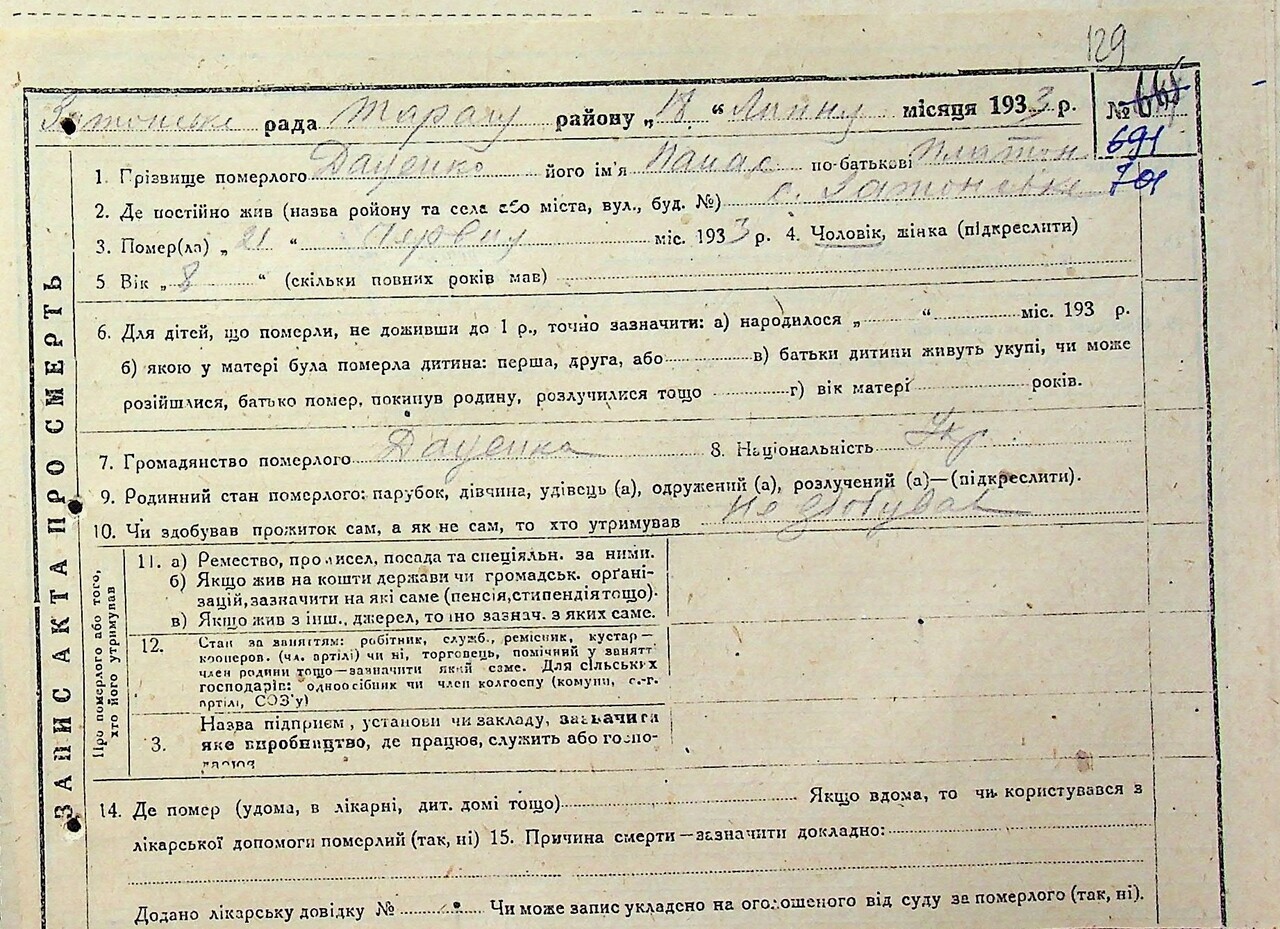 129
рада Таращ району „18 “ Липну місяця 1933 р. №
691
701
ЗАПИС АКТА ПРО СМЕРТЬ
1. Грізвище померлого Даценко його ім'я Панас по-батькові Платон
2. Де постійно жив (назва району та села або міста, вул., буд. №) с.
3. Помер(ла) „ 21 “ Червня міс. 1933 р. 4. Чоловік, жінка (підкреслити)
5 Вік „ 8 “ (скільки повних років мав)
6. Для дітей, що померли, не доживши до 1 р., точно зазначити: а) народилося „ “ міс. 193 р.
б) якою у матері була померла дитина: перша, друга, або в) батьки дитини живуть укупі, чи може
розійшлися, батько помер, покинув родину, розлучилися тощо г) вік матері років.
7. Громадянство померлого Даценка 8. Національність Укр
9. Родинний стан померлого: парубок, дівчина, удівець (а), одружений (а), розлучений (а)—(підкреслити).
10. Чи здобував прожиток сам, а як не сам, то хто утримував Не здобував
Про померлого або того,
хто його утримував
11. а) Ремество, промисел, посада та спеціяльн. за ними.
б) Якщо жив на кошти держави чи громадськ. орґані-
зацій, зазначити на які саме (пенсія, стипендія тощо).
в) Якщо жив з інш. джерел, то їно зазнач. з яких саме.
12. Стан за заняттям: робітник, служб., ремісник, кустар—
кооперов. (чл. артілі) чи ні, торговець, помічний у занятт
член родини тощо—зазначити який саме. Для сільських
господарів: одноосібник чи член колгоспу (комуни, с.-г.
артілі, СОЗ'у)
3. Назва підприєм, установи чи закладу, зазначити
яке виробництво, де працює, служить або госпо-
14. Де помер (удома, в лікарні, дит. домі тощо) Якщо вдома, то чи користувався з
лікарської допомоги померлий (так, ні) 15. Причина смерти—зазначити докладно:
Додано лікарську довідку № Чи може запис укладено на оголошеного від суду за померлого (так, ні).